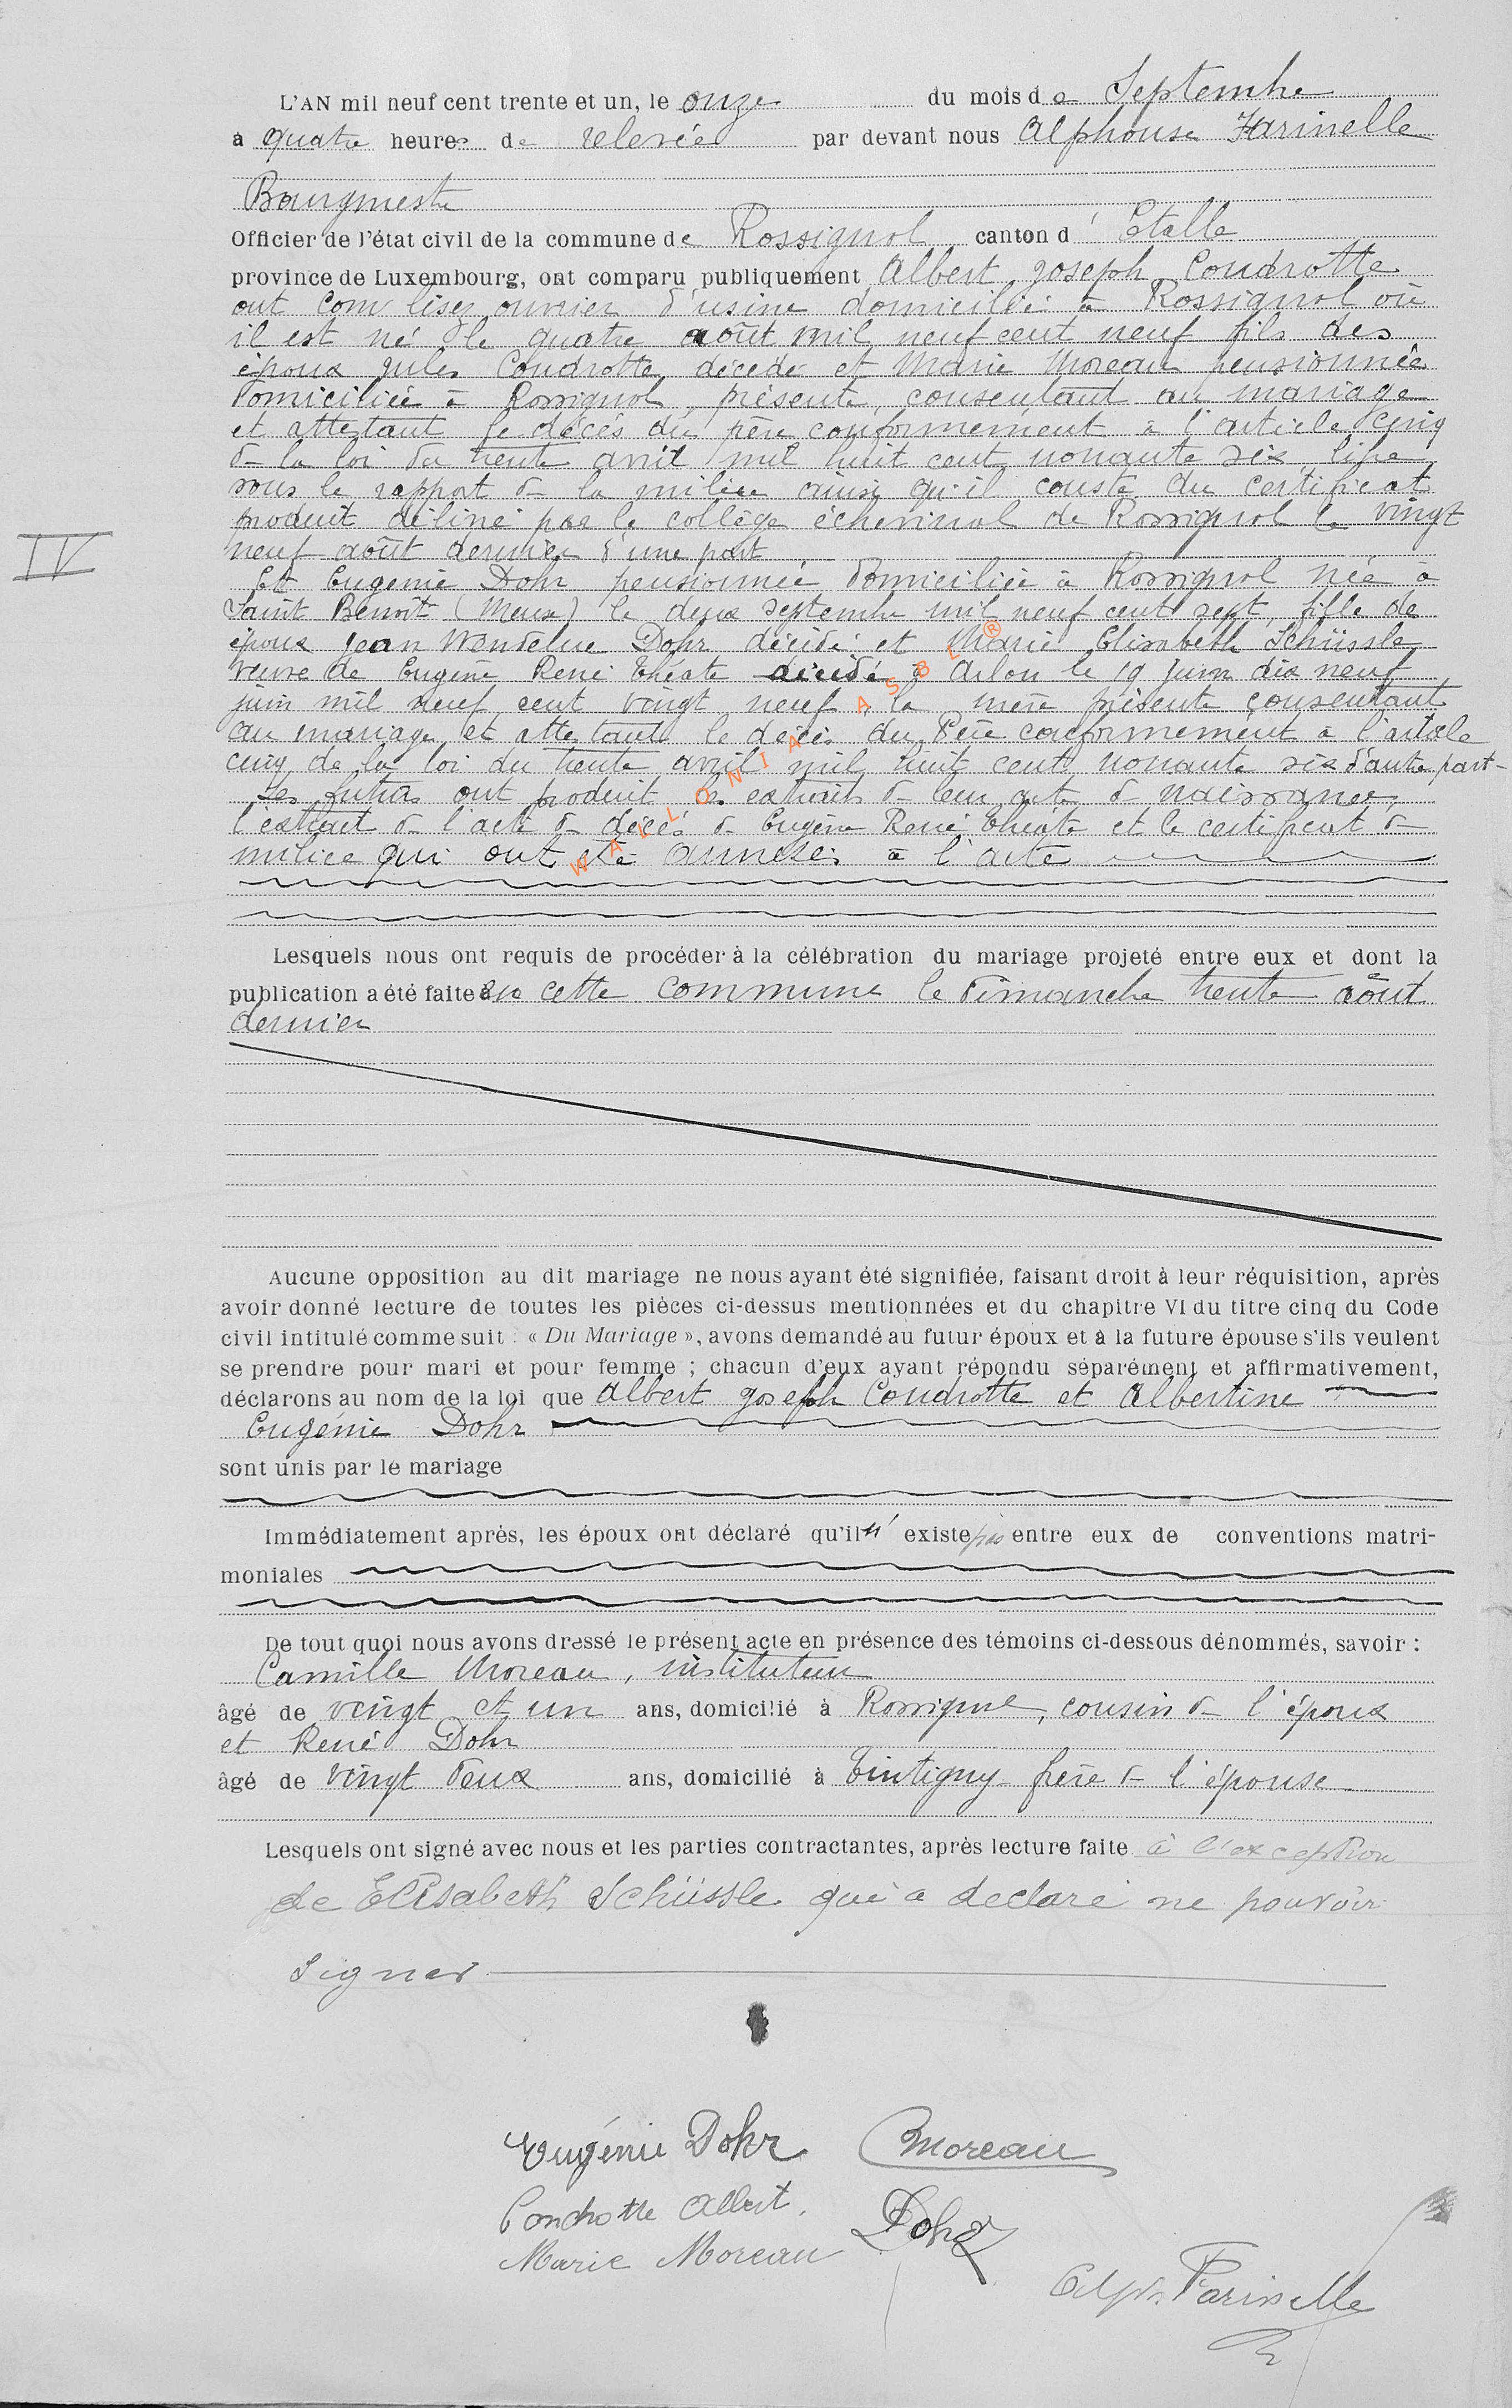 L'AN mil neuf cent trente et un, le onze du mois de Septembre
a quatre heures de relevée par devant nous Alphonse Farinelle
Bourgmestre
Officier de l'état civil de la commune de Rossignol canton d' Etalle
province de Luxembourg, ont comparu publiquement Albert Joseph Condrotte
ouvrier d'usine domicilié à Rossignol où
il est né le quatre août mil neuf cent neuf fils des
époux Jules Condrotte décédé et Marie Moreau pensionnée
domiciliée à Rossignol, présente, consentant au mariage
et attestant le décès du père conformément à l'article cinq
de la loi du trente avril mil huit cent nonante six libre
sous le rapport de la milice ainsi qu'il conste du certificat
produit délivré par le collège échevinal de Rossignol le vingt
neuf août dernier d'une part
Et Eugénie Dohr pensionnée domiciliée à Rossignol née à
Saint Benoît (Meuse) le deux septembre mil neuf cent sept, fille de
époux Jean Wendelin Dohr décédé et Marie Elisabeth Schüssle
veuve de Eugène René Théate décédé à Arlon le 19 juin dix neuf
juin mil neuf cent vingt neuf, la mère présente consentant
au mariage et attestant le décès du Père conformément à l'article
cinq de la loi du trente avril mil huit cent nonante six d'autre part-
Les futurs ont produit les extraits de leur acte de naissance,
l'extrait de l'acte de décès de Eugène René Théate et le certificat de
milice qui ont été annexés à l'acte
WALLONIA ASBL ®
IV
Lesquels nous ont requis de procéder à la célébration du mariage projeté entre eux et dont la
publication a été faite en cette commune le dimanche trente août
dernier
Aucune opposition au dit mariage ne nous ayant été signifiée, faisant droit à leur réquisition, après
avoir donné lecture de toutes les pièces ci-dessus mentionnées et du chapitre VI du titre cinq du Code
civil intitulé comme suit : « Du Mariage », avons demandé au futur époux et à la future épouse s'ils veulent
se prendre pour mari et pour femme ; chacun d'eux ayant répondu séparément et affirmativement,
déclarons au nom de la loi que Albert Joseph Condrotte et Albertine
Eugénie Dohr
sont unis par le mariage
Immédiatement après, les époux ont déclaré qu'il n'existe pas entre eux de conventions matri-
moniales
De tout quoi nous avons dressé le présent acte en présence des témoins ci-dessous dénommés, savoir :
Camille Moreau, instituteur
âgé de vingt et un ans, domicilié à Rossignol, cousin de l'époux
et René Dohr
âgé de vingt deux ans, domicilié à Tintigny frère de l'épouse
Lesquels ont signé avec nous et les parties contractantes, après lecture faite à l'exception
de Elisabeth Schüssle qui a declaré ne pouvoir
signer
Eugénie Dohr CMoreau
Condrotte Albert. Dohr
Marie Moreau
Alph. Farinelle